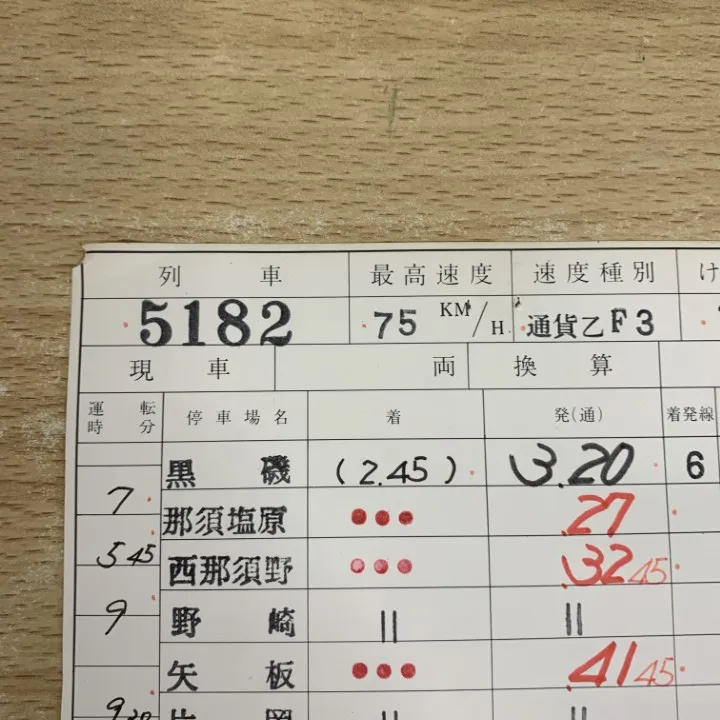 列車 最高速度 速度種別 け
5182 75 KM/H 通貨乙F3
現車 両 換算
運転時分 停車場名 着 発(通) 着発線
黒磯 (2.45) 3.20 6
7
那須塩原 ••• .27
5 45
西那須野 ••• .32 45
9
野崎 || ||
矢板 ••• .41 45
片岡 || ||